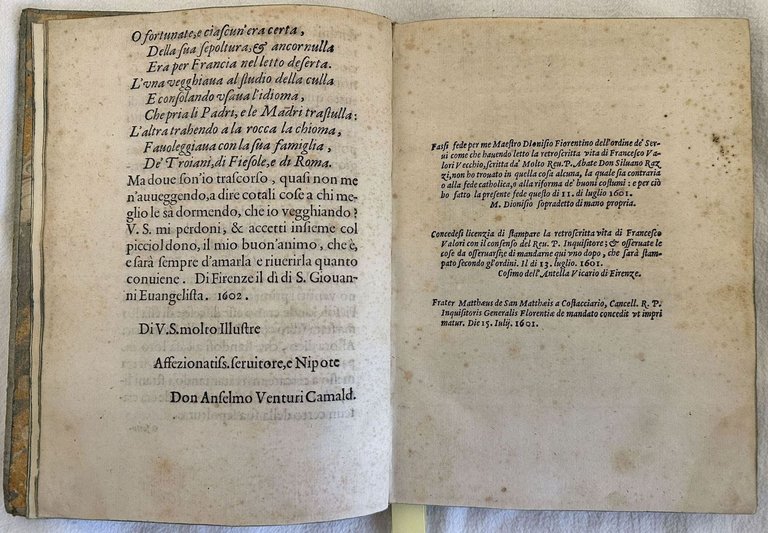 O fortunate, e ciascun'era certa,
Della sua sepoltura, & ancor nulla
Era per Francia nel letto deserta.
L'vna vegghiaua al studio della culla
E consolando vsaua l'idioma,
Che pria li Padri, e le Madri trastulla:
L'altra trahendo a la rocca la chioma,
Fauoleggiaua con la sua famiglia,
De' Troiani, di Fiesole, e di Roma.
Ma doue son'io trascorso, quasi non me
n'auueggendo, a dire cotali cose a chi me-
glio le sa dormendo, che io vegghiando?
V. S. mi perdoni, & accetti insieme col
picciol dono, il mio buon'animo, che è,
e sarà sempre d'amarla e riuerirla quanto
conuiene. Di Firenze il dì di S. Giouan-
ni Euangelista. 1602.
Di V. S. molto Illustre
Affezionatiss. seruitore, e Nipote
Don Anselmo Venturi Camald.
Fassi fede per me Maestro Dionisio Fiorentino dell'ordine de' Ser-
ui come che hauendo letto la retroscritta vita di Francesco Va-
lori Vecchio, scritta da' Molto Reu. P. Abate Don Siluano Raz
zi, non ho trouato in quella cosa alcuna, la quale sia contraria
o alla fede catholica, o alla riforma de' buoni costumi: e per ciò
ho fatto la presente fede questo dì 11. di luglio 1601.
M. Dionisio sopradetto di mano propria.
Concedesi licenzia di stampare la retroscritta vita di Francesco
Valori con il consenso del Reu. P. Inquisitore; & osseruate le
cose da osseruarsi; e di mandarne qui vno dopo, che sarà stam-
pato secondo gl'ordini. Il dì 13. luglio. 1601.
Cosimo dell'Antella Vicario di Firenze.
Frater Matthæus de San Matthais a Costacciario, Cancell. R. P.
Inquisitoris Generalis Florentiæ de mandato concedit vt impri
matur. Die 15. Iulij. 1601.